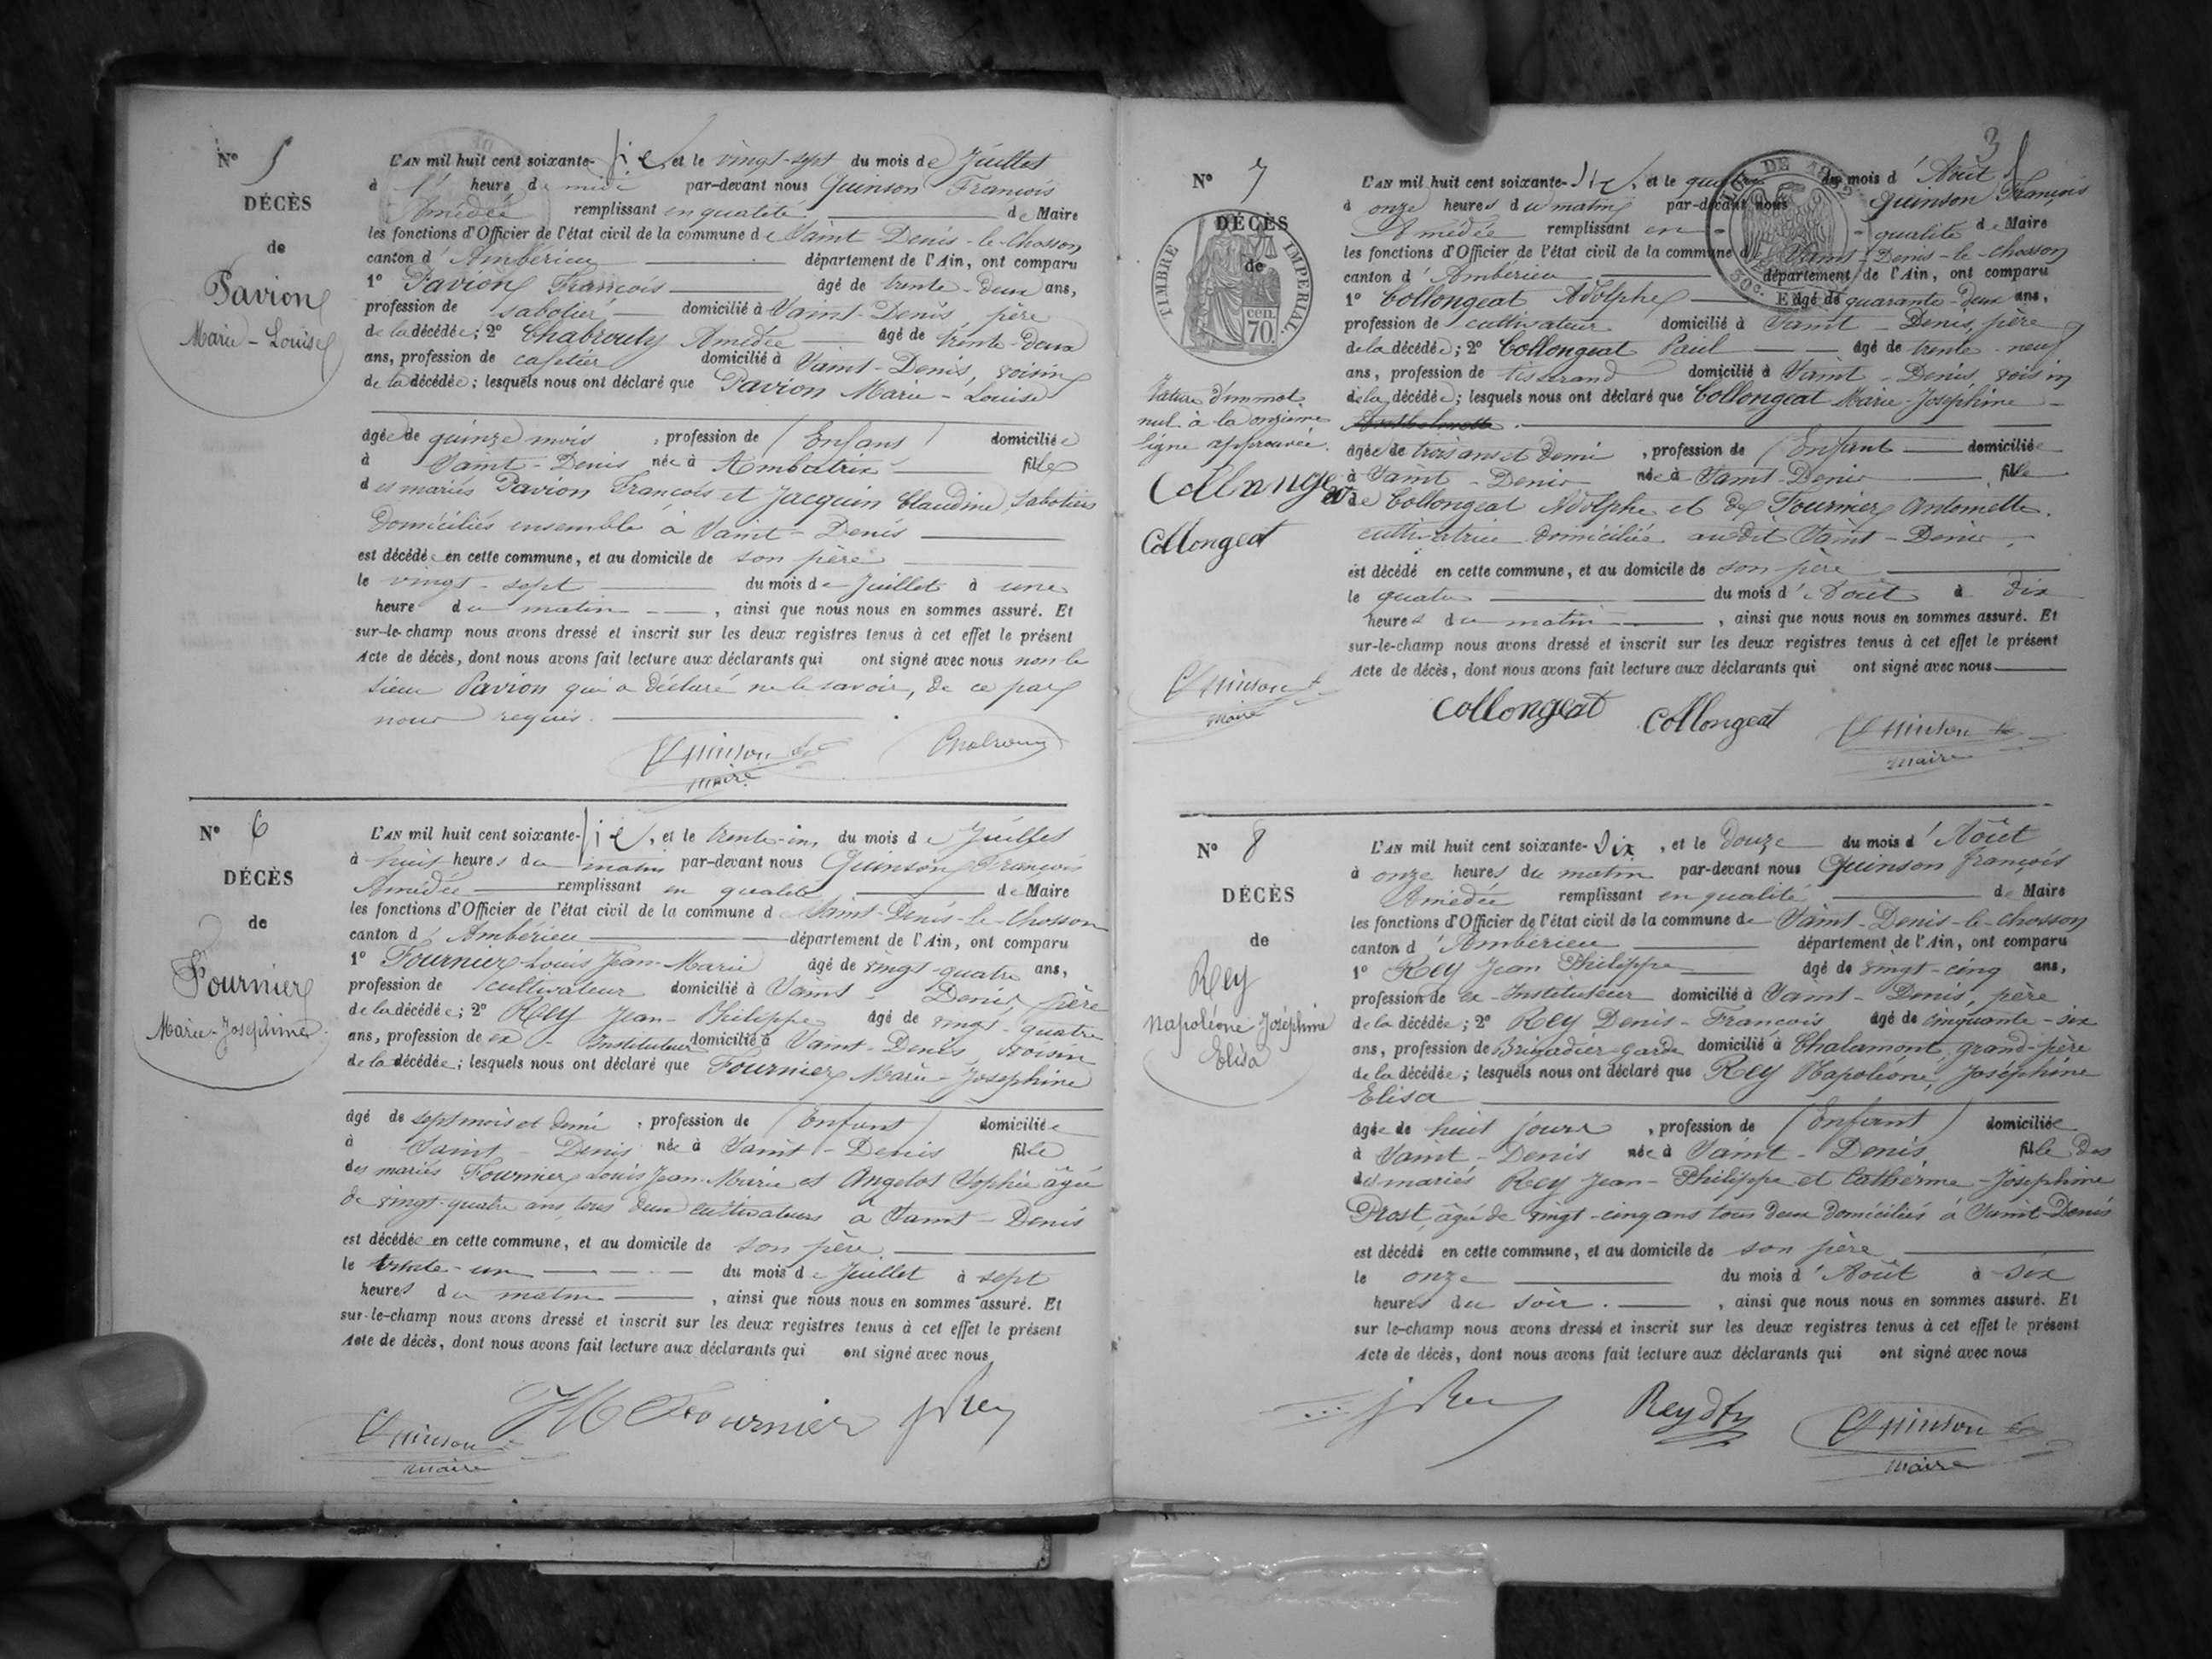 N° 5
DÉCÈS
de
Pavion
Marie-Louise
L'AN mil huit cent soixante-dix, et le vingt-sept du mois de Juillet
à 1 heure de midi par-devant nous Quinson François
Amédée remplissant en qualité de Maire
les fonctions d'Officier de l'état civil de la commune de Saint-Denis-le-Chosson
canton d'Ambérieu département de l'Ain, ont comparu
1° Pavion François âgé de trente-deux ans,
profession de sabotier domicilié à Saint-Denis, père
de la décédée; 2° Chabrouty Amédée âgé de trente-deux
ans, profession de cafetier domicilié à Saint-Denis, voisin
de la décédée; lesquels nous ont déclaré que Pavion Marie-Louise
âgée de quinze mois, profession de (Enfant) domiciliée
à Saint-Denis née à Ambutrix fille
des mariés Pavion François et Jacquin Claudine, sabotiers
domiciliés ensemble à Saint-Denis
est décédée en cette commune, et au domicile de son père
le vingt-sept du mois de Juillet à une
heure du matin, ainsi que nous nous en sommes assuré. Et
sur-le-champ nous avons dressé et inscrit sur les deux registres tenus à cet effet le présent
Acte de décès, dont nous avons fait lecture aux déclarants qui ont signé avec nous non le
sieur Pavion qui a déclaré ne le savoir, de ce par
nous requis.
Quinson
maire
N° 6
DÉCÈS
de
Fournier
Marie-Joséphine
L'AN mil huit cent soixante-dix, et le trente-un du mois de Juillet
à huit heures du matin par-devant nous Quinson François
Amédée remplissant en qualité de Maire
les fonctions d'Officier de l'état civil de la commune de Saint-Denis-le-Chosson
canton d'Ambérieu département de l'Ain, ont comparu
1° Fournier Louis Jean-Marie âgé de vingt-quatre ans,
profession de cultivateur domicilié à Saint-Denis, père
de la décédée; 2° Rey Jean-Philippe âgé de vingt-quatre
ans, profession de ex-Instituteur domicilié à Saint-Denis, voisin
de la décédée; lesquels nous ont déclaré que Fournier Marie-Joséphine
âgé de sept mois et demi, profession de (Enfant) domiciliée
à Saint-Denis née à Saint-Denis fille
des mariés Fournier Louis Jean-Marie et Angelot Sophie âgée
de vingt-quatre ans, tous deux cultivateurs à Saint-Denis
est décédée en cette commune, et au domicile de son père
le trente-un du mois de Juillet à sept
heures du matin, ainsi que nous nous en sommes assuré. Et
sur-le-champ nous avons dressé et inscrit sur les deux registres tenus à cet effet le présent
Acte de décès, dont nous avons fait lecture aux déclarants qui ont signé avec nous
Fournier JRey
Quinson
maire
3
N° 7
DÉCÈS
de
TIMBRE IMPERIAL
cen.
70.
Rature d'un mot
nul à la onzième
ligne approuvée.
Collongeat
Collongeat
Quinson
maire
L'AN mil huit cent soixante-dix, et le quatre du mois d'Août
à onze heures du matin par-devant nous Quinson François
Amédée remplissant en qualité de Maire
les fonctions d'Officier de l'état civil de la commune de Saint-Denis-le-Chosson
canton d'Ambérieu département de l'Ain, ont comparu
1° Collongeat Adolphe âgé de quarante-deux ans,
profession de cultivateur domicilié à Saint-Denis, père
de la décédée; 2° Collongeat Paul âgé de trente-neuf
ans, profession de tisserand domicilié à Saint-Denis, voisin
de la décédée; lesquels nous ont déclaré que Collongeat Marie-Joséphine
âgée de trois ans et demi, profession de (Enfant domiciliée
à Saint-Denis née à Saint-Denis fille
de Collongeat Adolphe et de Fournier Antoinette.
cultivatrice domiciliée audit Saint-Denis.
est décédé en cette commune, et au domicile de son père
le quatre du mois d'Août à dix
heures du matin, ainsi que nous nous en sommes assuré. Et
sur-le-champ nous avons dressé et inscrit sur les deux registres tenus à cet effet le présent
Acte de décès, dont nous avons fait lecture aux déclarants qui ont signé avec nous
Collongeat Collongeat Quinson
maire
N° 8
DÉCÈS
de
Rey
Napoléone Joséphine
Elisa
L'AN mil huit cent soixante-Dix, et le Douze du mois d'Août
à onze heures du matin par-devant nous Quinson François
Amédée remplissant en qualité de Maire
les fonctions d'Officier de l'état civil de la commune de Saint-Denis-le-Chosson
canton d'Ambérieu département de l'Ain, ont comparu
1° Rey Jean Philippe âgé de vingt-cinq ans,
profession de ex-Instituteur domicilié à Saint-Denis, père
de la décédée; 2° Rey Denis-François âgé de cinquante-six
ans, profession de Brigadier-garde domicilié à Chalamont, grand-père
de la décédée; lesquels nous ont déclaré que Rey Napoléone, Joséphine
Elisa
âgée de huit jours, profession de (Enfant) domiciliée
à Saint-Denis née à Saint-Denis fille des
des mariés Rey Jean-Philippe et Catherine-Joséphine
Prost, âgée de vingt-cinq ans tous deux domiciliés à Saint-Denis
est décédé en cette commune, et au domicile de son père
le onze du mois d'Août à six
heures du soir., ainsi que nous nous en sommes assuré. Et
sur le-champ nous avons dressé et inscrit sur les deux registres tenus à cet effet le présent
Acte de décès, dont nous avons fait lecture aux déclarants qui ont signé avec nous
JRey Rey dfs Quinson
maire